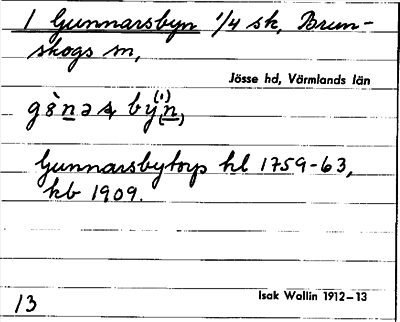 1 Gunnarsbyn 1/4 sk, Brun-
skogs sn,
Jösse hd, Värmlands län
Gunnarsbytorp hl 1759-63,
kb 1909.
Isak Wallin 1912–13
13